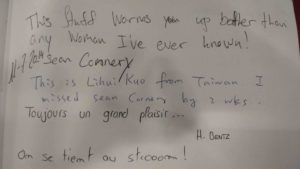 This stuff warms you up better than
any woman I've ever known!
Sean Connery
This is Lihui Kuo from Taiwan I
missed Sean Connery by 2 wks.
Toujours un grand plaisir...
H.
On se tient au